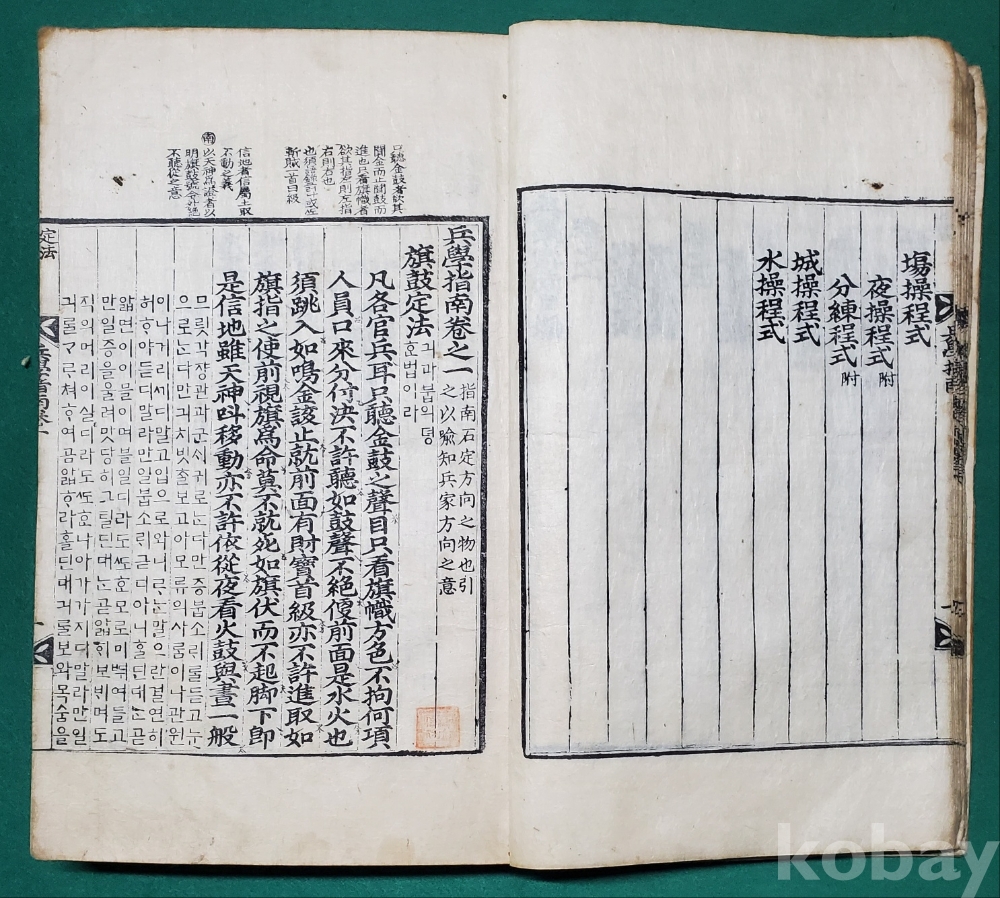 塲操程式
夜操程式 附
分練程式 附
城操程式
水操程式
只聽金鼓者欲其
聞金而止聞鼓而
進也只看旗幟者
欲其指左則左指
右則右也
斬賊一首曰級
信地者信屬土取
不動之義
南 以天神爲證者以
明旗鼓號令外絶
不聽從之意
兵學指南卷之一 指南石定方向之物也引
之以喩知兵家方向之意
旗鼓定法 긔과붑의뎡
호법이라
凡各官兵耳只聽金鼓之聲目只看旗幟方色不拘何項
人員口來分付决不許聽如鼓聲不絶傻前面是水火也
須跳入如鳴金該止就前面有財寶首級亦不許進取如
旗指之使前視旗爲命莫不就死如旗伏而不起脚下卽
是信地雖天神呌移動亦不許依從夜看火鼓與晝一般
므릇각쟝관과군시귀로ᄂᆞᆫ다만증붑소ᄅᆡᄅᆞᆯ듣고눈
으로ᄂᆞᆫ다만긔치빗ᄎᆞᆯ보고아모류의사ᄅᆞᆷ이나관원
이나거리ᄭᅵ디말고입으로와니ᄅᆞᄂᆞᆫ말으란결연히
허ᄒᆞ야듣디말라만일붑소ᄅᆡ귿디아니ᄒᆞᆯ딘대ᄂᆞᆫ곧
앏면이믈이며블일디라도ᄯᅩ호모로미ᄠᅱ여들고
만일증을울려맛당히그틸딘대ᄂᆞᆫ곧앏ᄒᆡ보빅며도
직의머리이실디라도ᄯᅩ호나아가가지디말라만일
긔ᄅᆞᆯᄀᆞᄅᆞ쳐ᄒᆞ여곰앏ᄒᆞ라ᄒᆞᆯ딘대긔ᄅᆞᆯ보와목숨을
定法
kobay